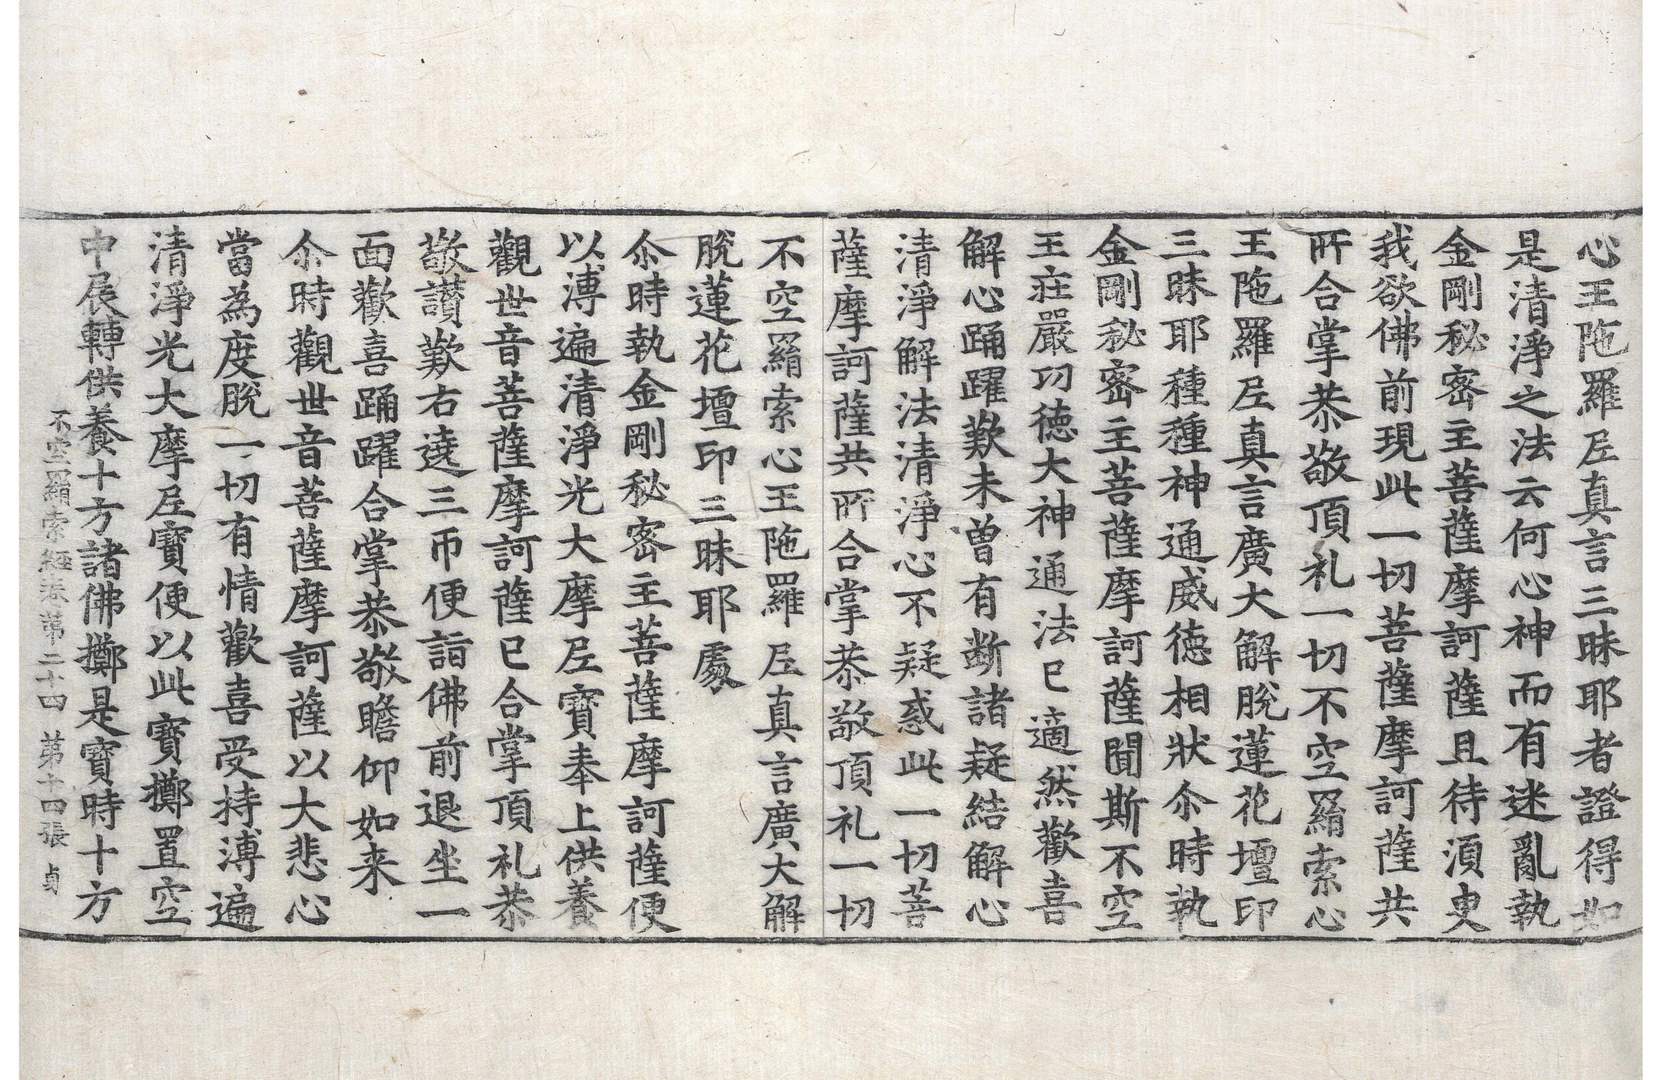 心王陁羅𡰱真言三昧耶者證得如
是清淨之法云何心神而有迷亂執
金剛秘密主菩薩摩訶薩且待湏㬰
我欲佛前現此一切菩薩摩訶薩共
所合掌恭敬頂礼一切不空羂索心
王陁羅𡰱真言廣大解脫蓮花壇印
三昧耶種種神通威德相狀尒時執
金剛秘密主菩薩摩訶薩聞斯不空
王莊嚴㓛德大神通法已適然歡喜
解心踊躍歎未曾有断諸疑結解心
清淨解法清淨心不疑惑此一切菩
薩摩訶薩共所合掌恭敬頂礼一切
不空羂索心王陁羅𡰱真言廣大解
脫蓮花壇印三昧耶處
尒時執金剛秘密主菩薩摩訶薩便
以溥遍清淨光大摩𡰱寶奉上供養
觀世音菩薩摩訶薩已合掌頂礼恭
敬讃歎右遶三帀便詣佛前退坐一
面歡喜踊躍合掌恭敬瞻仰如来
尒時觀世音菩薩摩訶薩以大悲心
當為度脫一切有情歡喜受持溥遍
清淨光大摩𡰱寶便以此寶擲置空
中展轉供養十方諸佛擲是寶時十方
不空羂索經卷第二十四 第十四張 貞